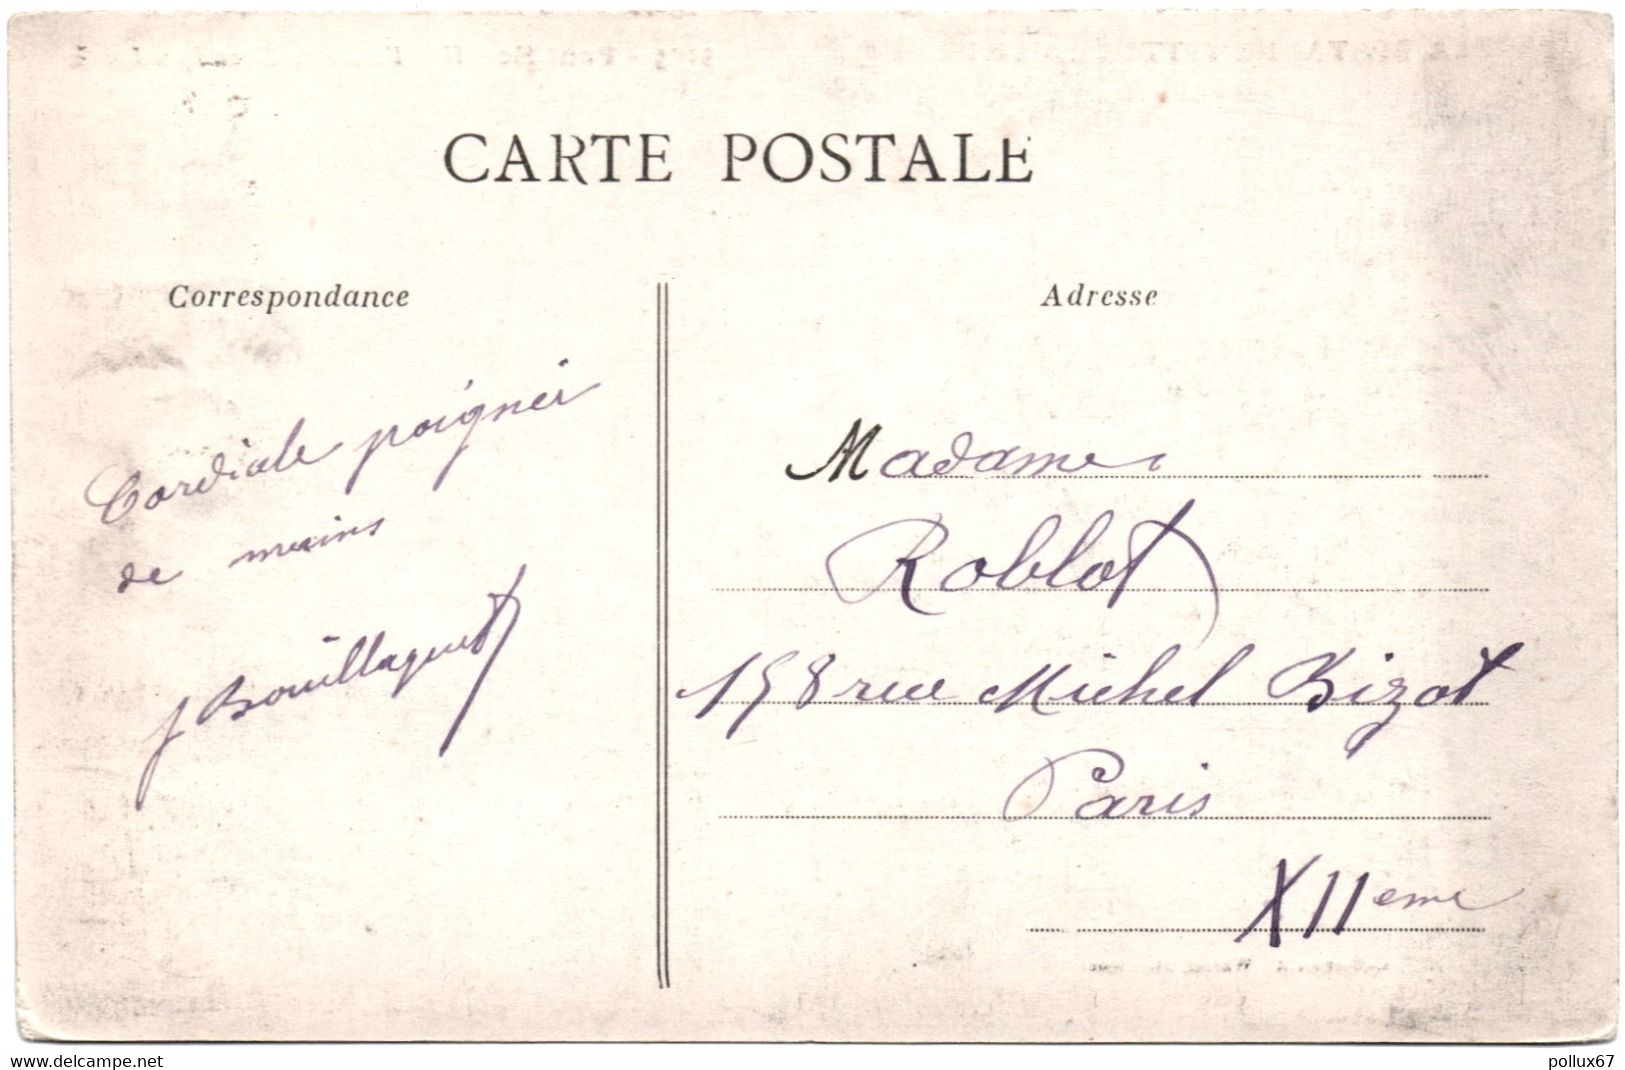 CARTE POSTALE
Correspondance
Cordiale poignée
de mains
J Bouillaguet
Adresse
Madame
Roblot
158 rue Michel Bizot
Paris
XIIeme
www.delcampe.net
pollux67